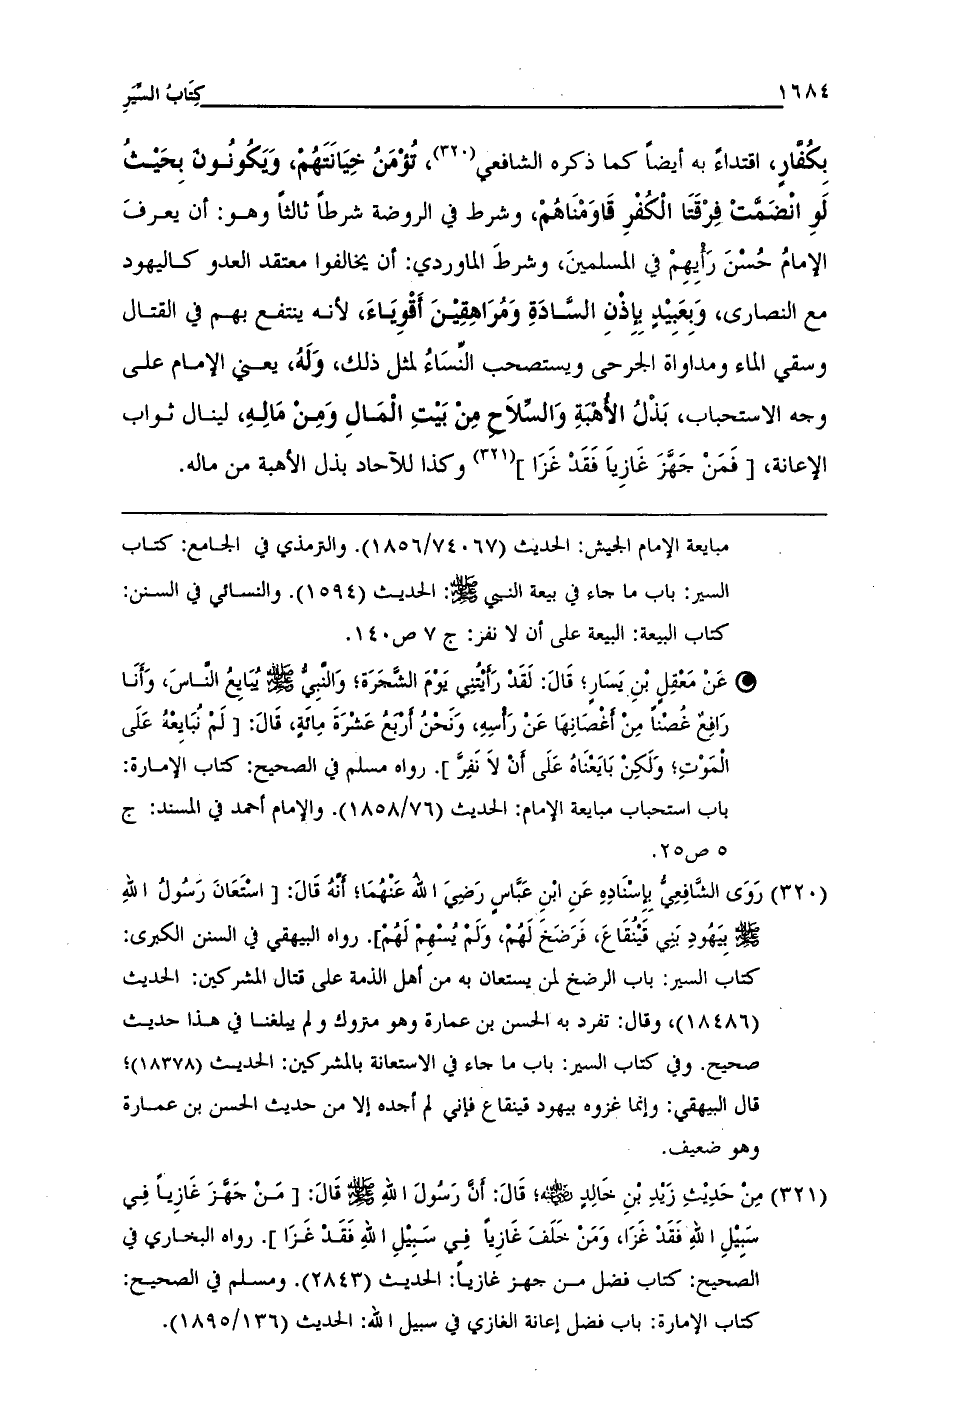 ١٦٨٤
كِتَابُ السِّيَرِ
بِكُفَّارٍ، اقتداءً به أيضاً كما ذكره الشافعي(٣٢٠)، تُؤْمَنُ خِيَانَتَهُمْ، وَيَكُونُونَ بِحَيْثُ
لَوِ انْضَمَّتْ فِرْقَتَا الْكُفْرِ قَاوَمْنَاهُمْ، وشرط في الروضة شرطاً ثالثاً وهو: أن يعرفَ
الإمامُ حُسْنَ رَأْيِهِمْ في المسلمينَ، وشرطَ الماوردي: أن يخالفوا معتقد العدو كاليهود
مع النصارى، وَبَعَبِيْدٍ بِإِذْنِ السَّادَةِ وَمُرَاهِقِيْنَ أَقْوِيَاءَ، لأنه ينتفع بهم في القتال
وسقي الماء ومداواة الجرحى ويستصحب النِّسَاءُ لمثل ذلك، وَلَهُ، يعني الإمام على
وجه الاستحباب، بَذْلُ الأُهْبَةِ وَالسِّلاَحِ مِنْ بَيْتِ الْمَالِ وَمِنْ مَالِهِ، لينال ثواب
الإعانة، [ فَمَنْ جَهَّزَ غَازِياً فَقَدْ غَزَا ](٣٢١) وكذا للآحاد بذل الأهبة من ماله.
مبايعة الإمام الجيش: الحديث (١٨٥٦/٧٤٠٦٧). والترمذي في الجامع: كتاب
السير: باب ما جاء في بيعة النبي ﷺ: الحديث (١٥٩٤). والنسائي في السنن:
كتاب البيعة: البيعة على أن لا نفز: ج ٧ ص١٤٠.
عَنْ مَعْقِلِ بْنِ يَسَارٍ؛ قَالَ: لَقَدْ رَأَيْتُنِي يَوْمَ الشَّجَرَةِ؛ وَالنَّبِيُّ ﷺ يُبَايِعُ النَّاسَ، وَأَنَا
رَافِعٌ غُصْناً مِنْ أَغْصَانِهَا عَنْ رَأْسِهِ، وَنَحْنُ أَرْبَعُ عَشْرَةَ مِائَةٍ، قَالَ: [ لَمْ نُبَايِعْهُ عَلَى
الْمَوْتِ؛ وَلَكِنْ بَايَعْنَاهُ عَلَى أَنْ لاَ نَفِرَّ ]. رواه مسلم في الصحيح: كتاب الإمارة:
باب استحباب مبايعة الإمام: الحديث (١٨٥٨/٧٦). والإمام أحمد في المسند: ج
٥ ص٢٥.
(٣٢٠) رَوَى الشَّافِعِيُّ بِإِسْنَادِهِ عَنِ ابْنِ عَبَّاسٍ رَضِيَ اللهُ عَنْهُمَا؛ أَنَّهُ قَالَ: [ اسْتَعَانَ رَسُولُ اللهِ
ﷺ بِيَهُودِ بَنِي قَيْنُقَاعَ، فَرَضَخَ لَهُمْ، وَلَمْ يُسْهِمْ لَهُمْ]. رواه البيهقي في السنن الكبرى:
كتاب السير: باب الرضخ لمن يستعان به من أهل الذمة على قتال المشركين: الحديث
(١٨٤٨٦)، وقال: تفرد به الحسن بن عمارة وهو متروك ولم يبلغنا في هذا حديث
صحيح. وفي كتاب السير: باب ما جاء في الاستعانة بالمشركين: الحديث (١٨٣٧٨)؛
قال البيهقي: وإنما غزوه بيهود قينقاع فإني لم أجده إلا من حديث الحسن بن عمارة
وهو ضعيف.
(٣٢١) مِنْ حَدِيْثِ زَيْدِ بْنِ خَالِدٍ ﵁؛ قَالَ: أَنَّ رَسُولَ اللهِ ﷺ قَالَ: [ مَنْ جَهَّزَ غَازِياً فِي
سَبِيْلِ اللهِ فَقَدْ غَزَا، وَمَنْ خَلَفَ غَازِياً فِي سَبِيْلِ اللهِ فَقَدْ غَزَا ]. رواه البخاري في
الصحيح: كتاب فضل من جهز غازياً: الحديث (٢٨٤٣). ومسلم في الصحيح:
كتاب الإمارة: باب فضل إعانة الغازي في سبيل الله: الحديث (١٨٩٥/١٣٦).